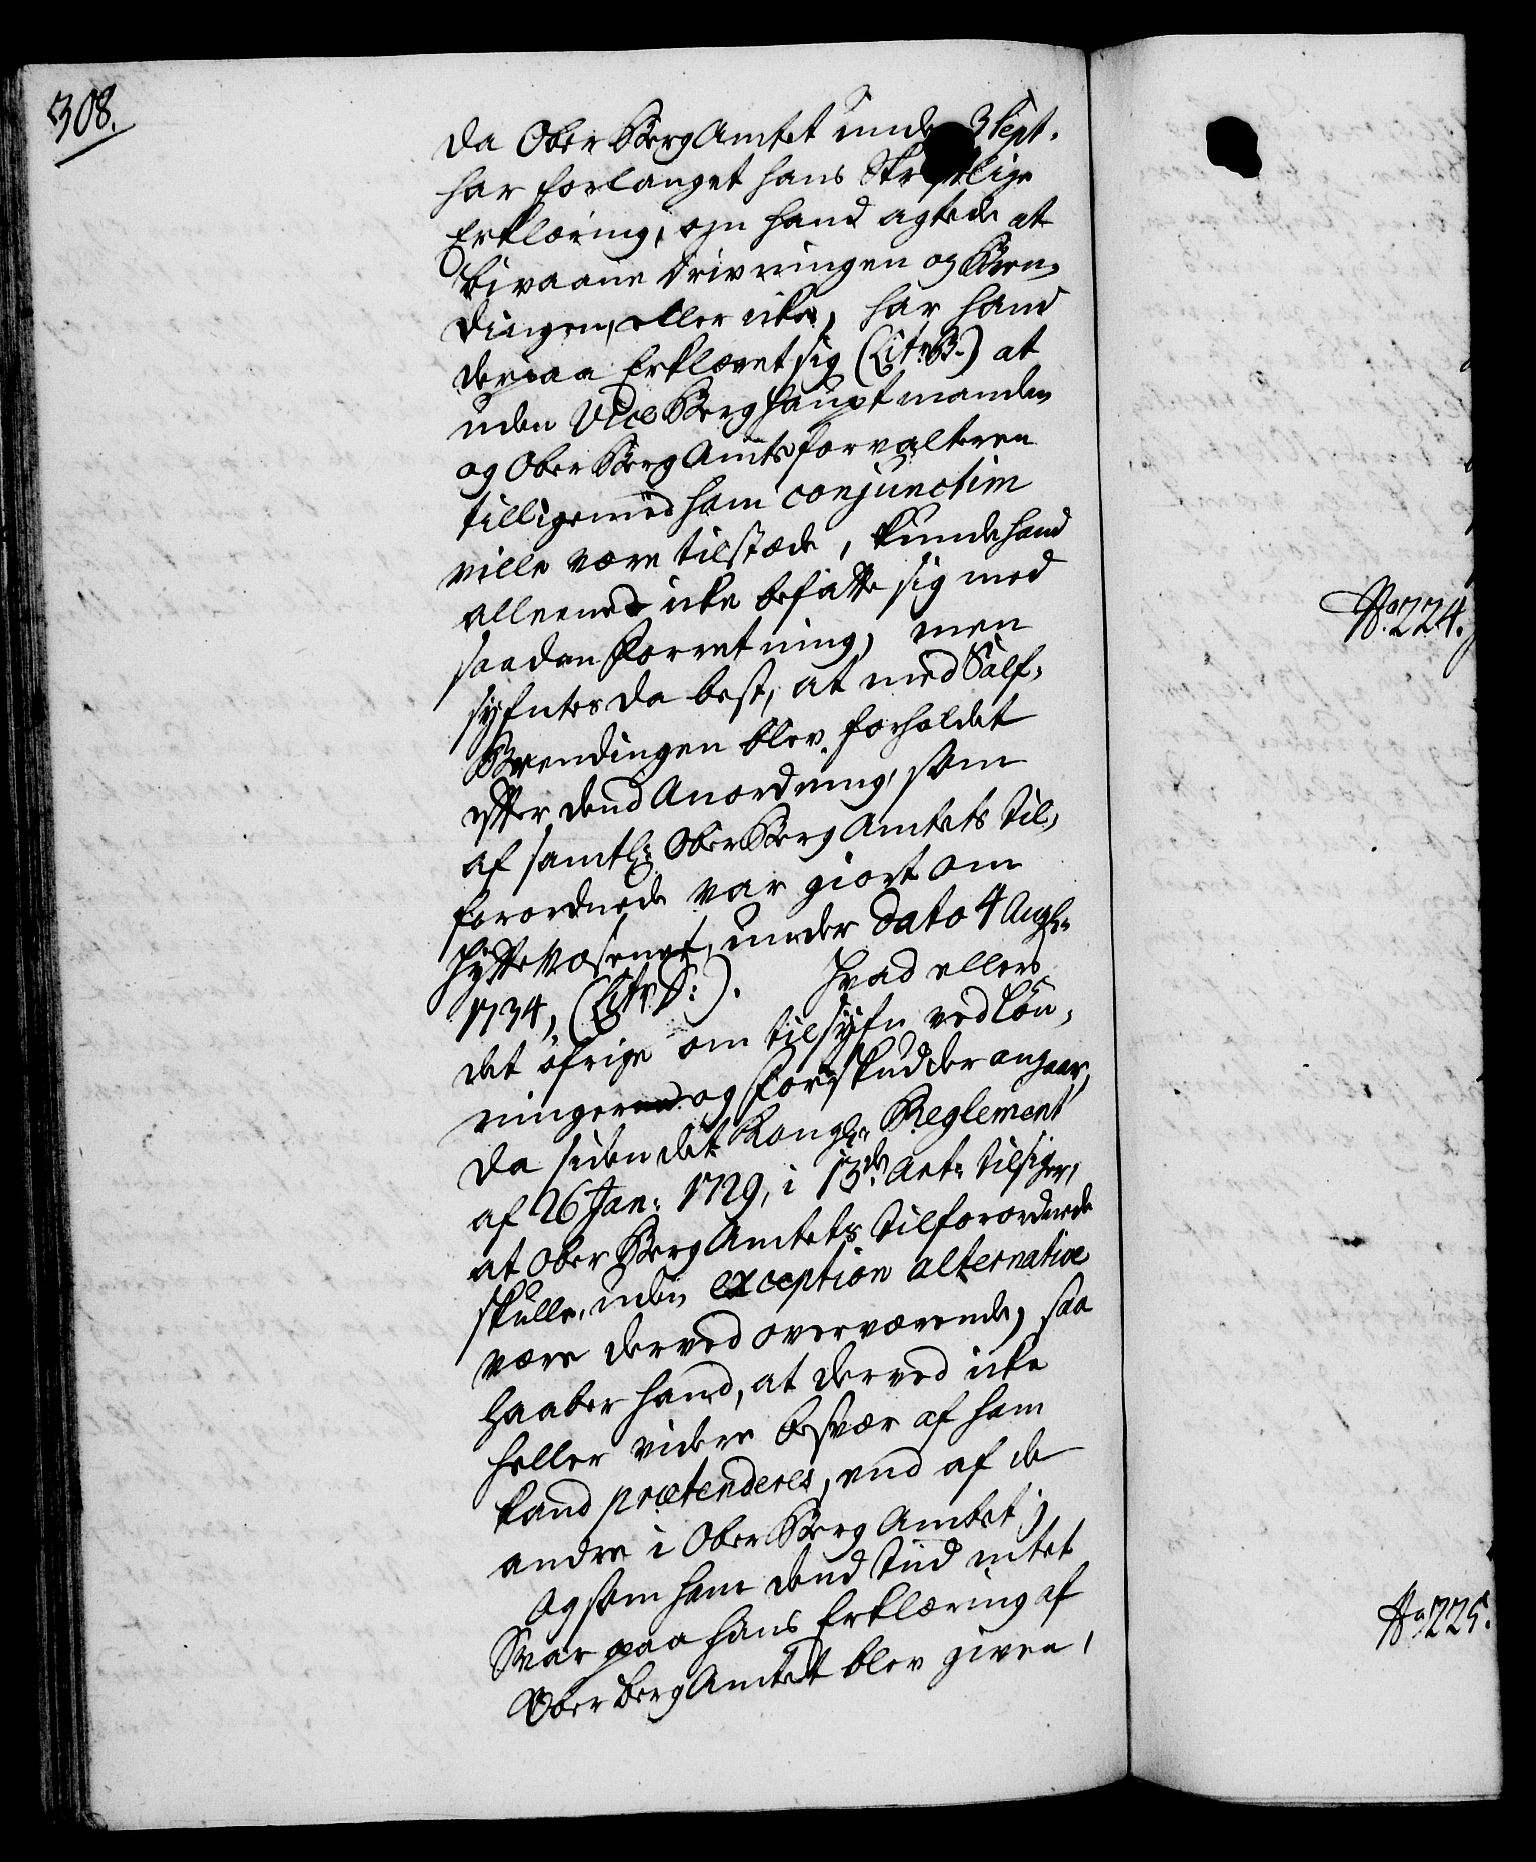 308.
da Ober Berg Amtet under 3 Sept.
har forlanget hans Skriftlige
Erklæring, om hand agtede at
bivaane Drivningen og Bren-
dingen, eller icke, har hand
derpaa Erklæret sig (Litr. B.) at
uden Vice Berghauptmanden
og Ober Berg Amts forvalteren
tilligemed ham conjunctim
ville være tilstæde, kunde hand
alleene icke befatte sig med
saadan Forretning, men
syntes da best, at med Sølf-
Brendingen blev forholdet
efter dend Anordning, som
af samtl: Ober Berg Amtets til-
forordnede var giort om
Hytte Væsenet, under Dato 4 Aug:
1734, (Litr. D:). Hvad ellers
det øfrige om tilsyn ved Løn-
ninger og Forskudder angaar,
da siden det Kongl: Reglement
af 26 Jan: 1729, i 13de Art: tilsiger,
at Ober Berg Amtets Tilforordnede
skulle, uden exception alternative
være derved overværende, saa
haaber hand, at derved icke
heller videre besvær af ham
kand prætenderes, end af de
andre i Ober Berg Amtet;
og som ham dend Tiid intet
Svar paa hans Erklæring af
Ober Berg Amtet blev given,
No. 224.
No. 225.